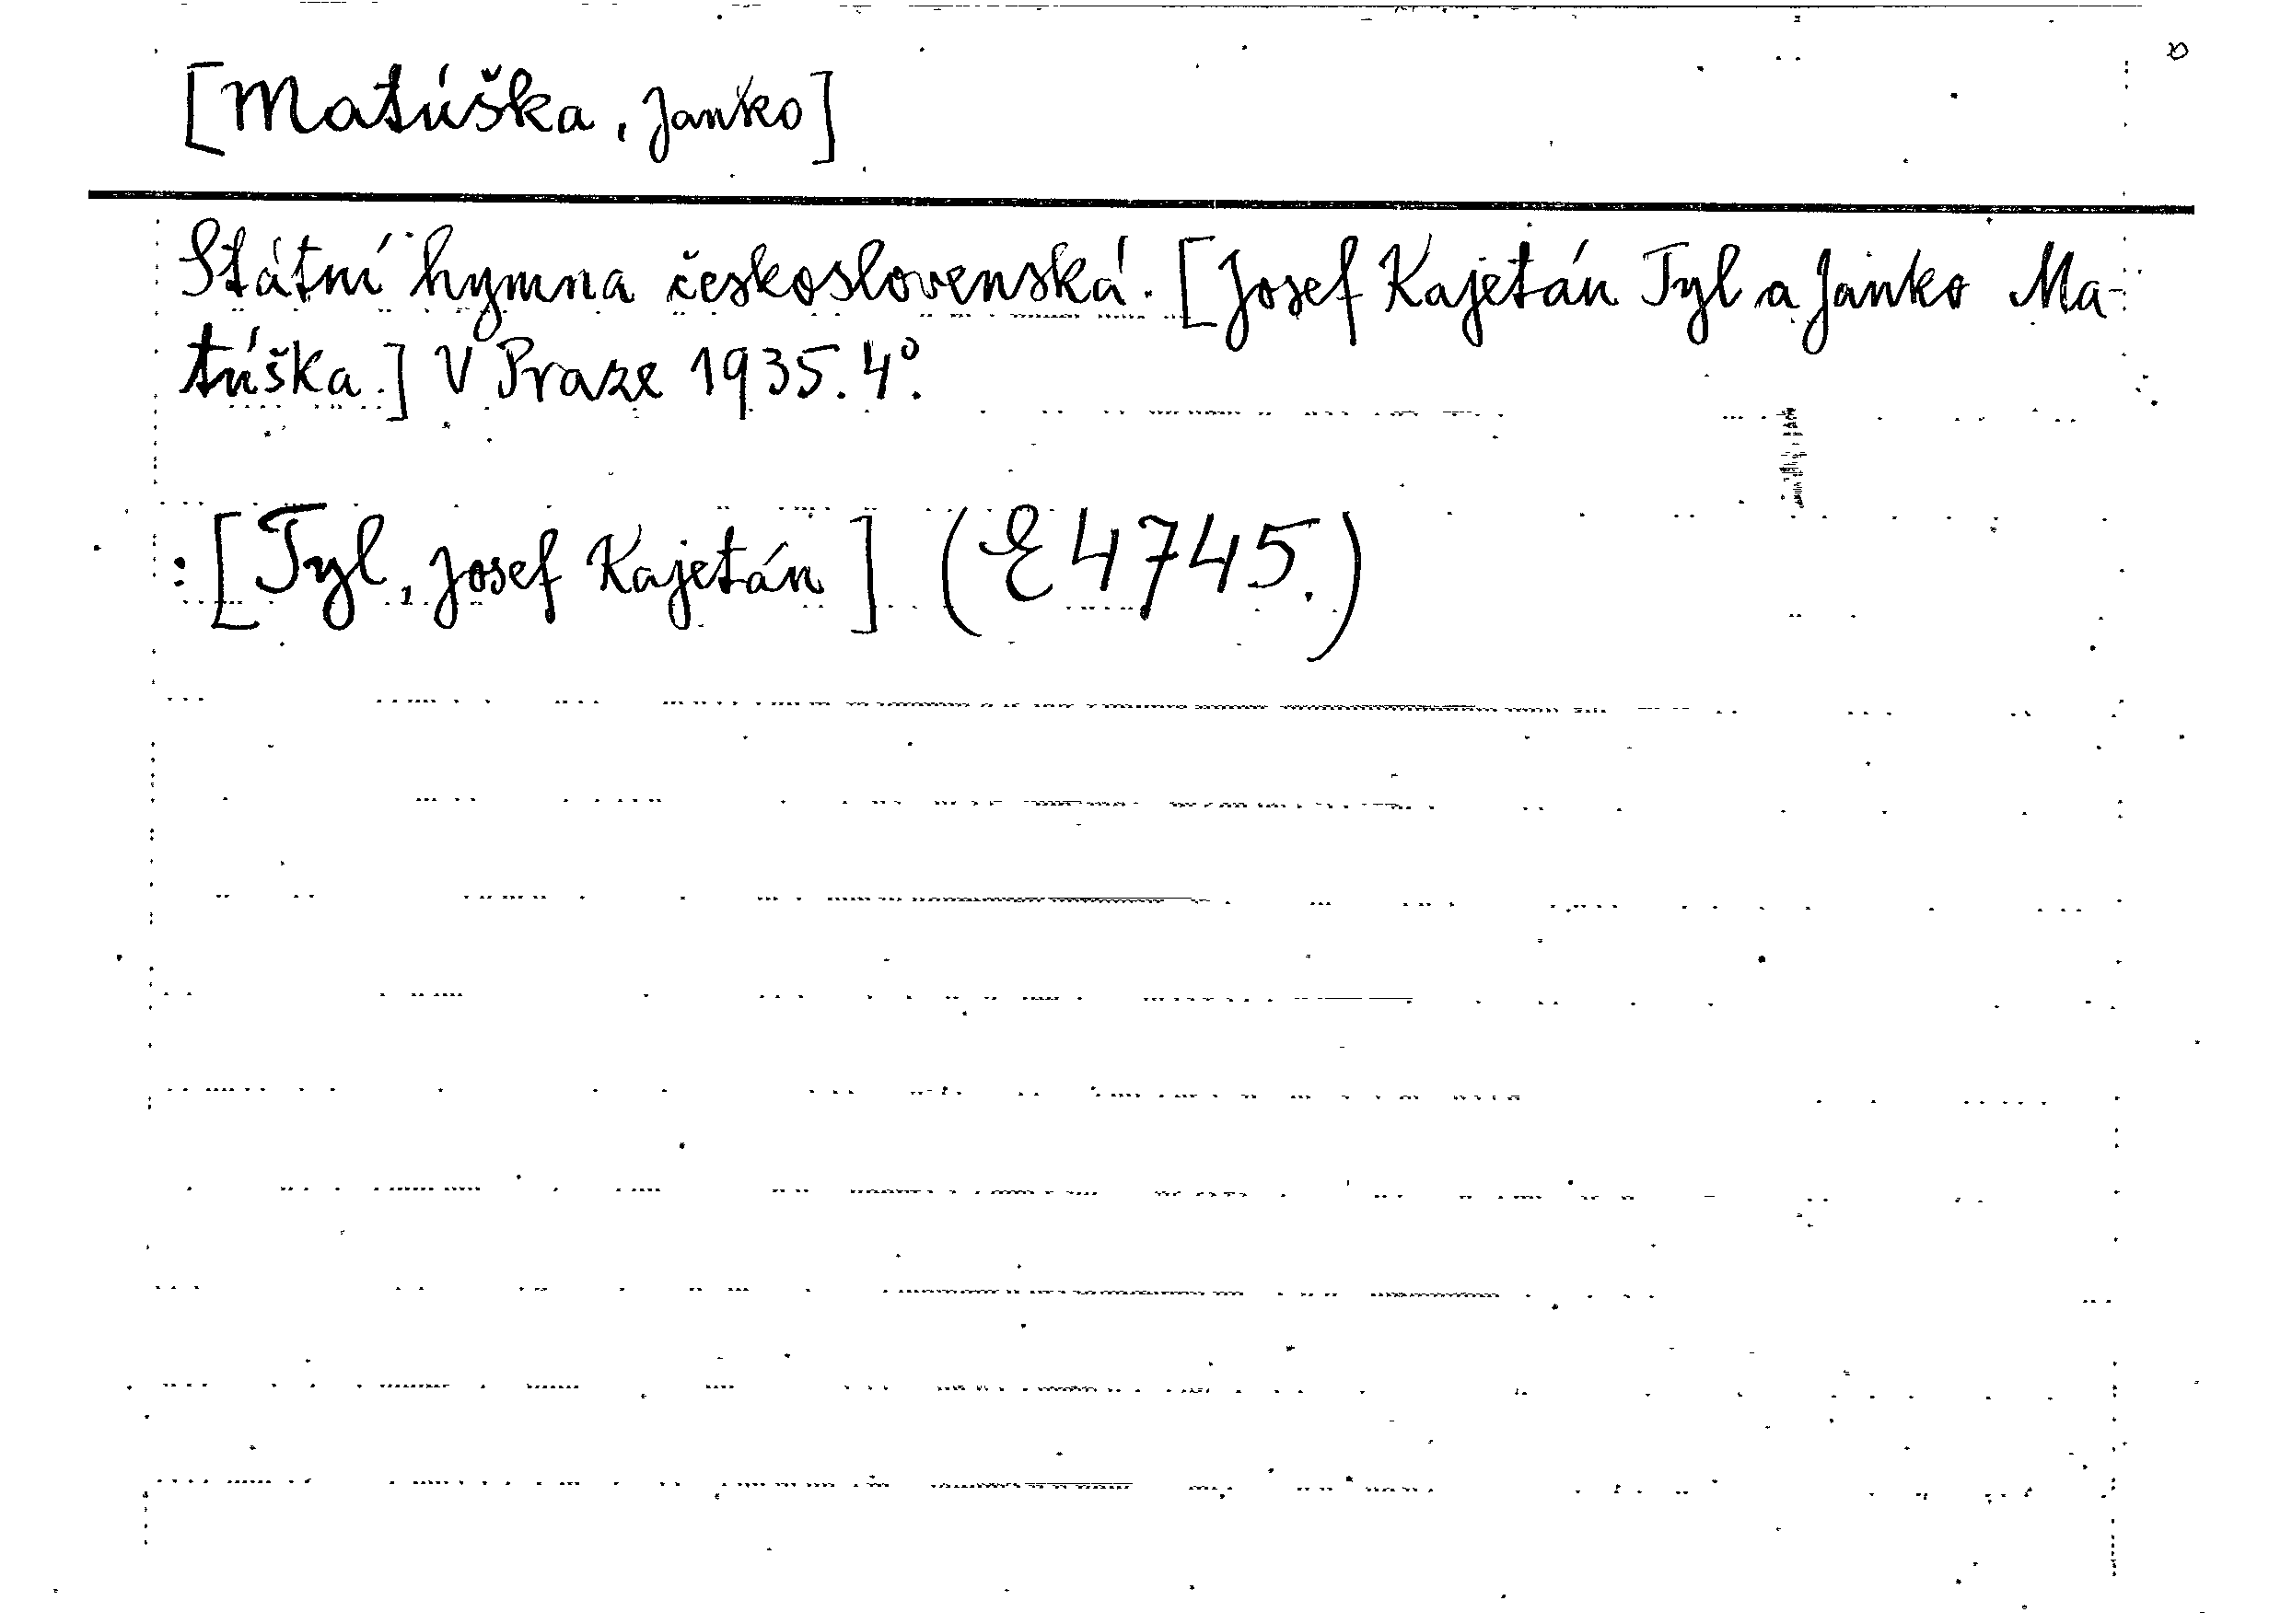 [Matúška, Janko]
Státní hymna československá. [Josef Kajetán Tyl a Janko Ma-
túška.] V Praze 1935. 4°.
: [Tyl, Josef Kajetán] (E 4745.)